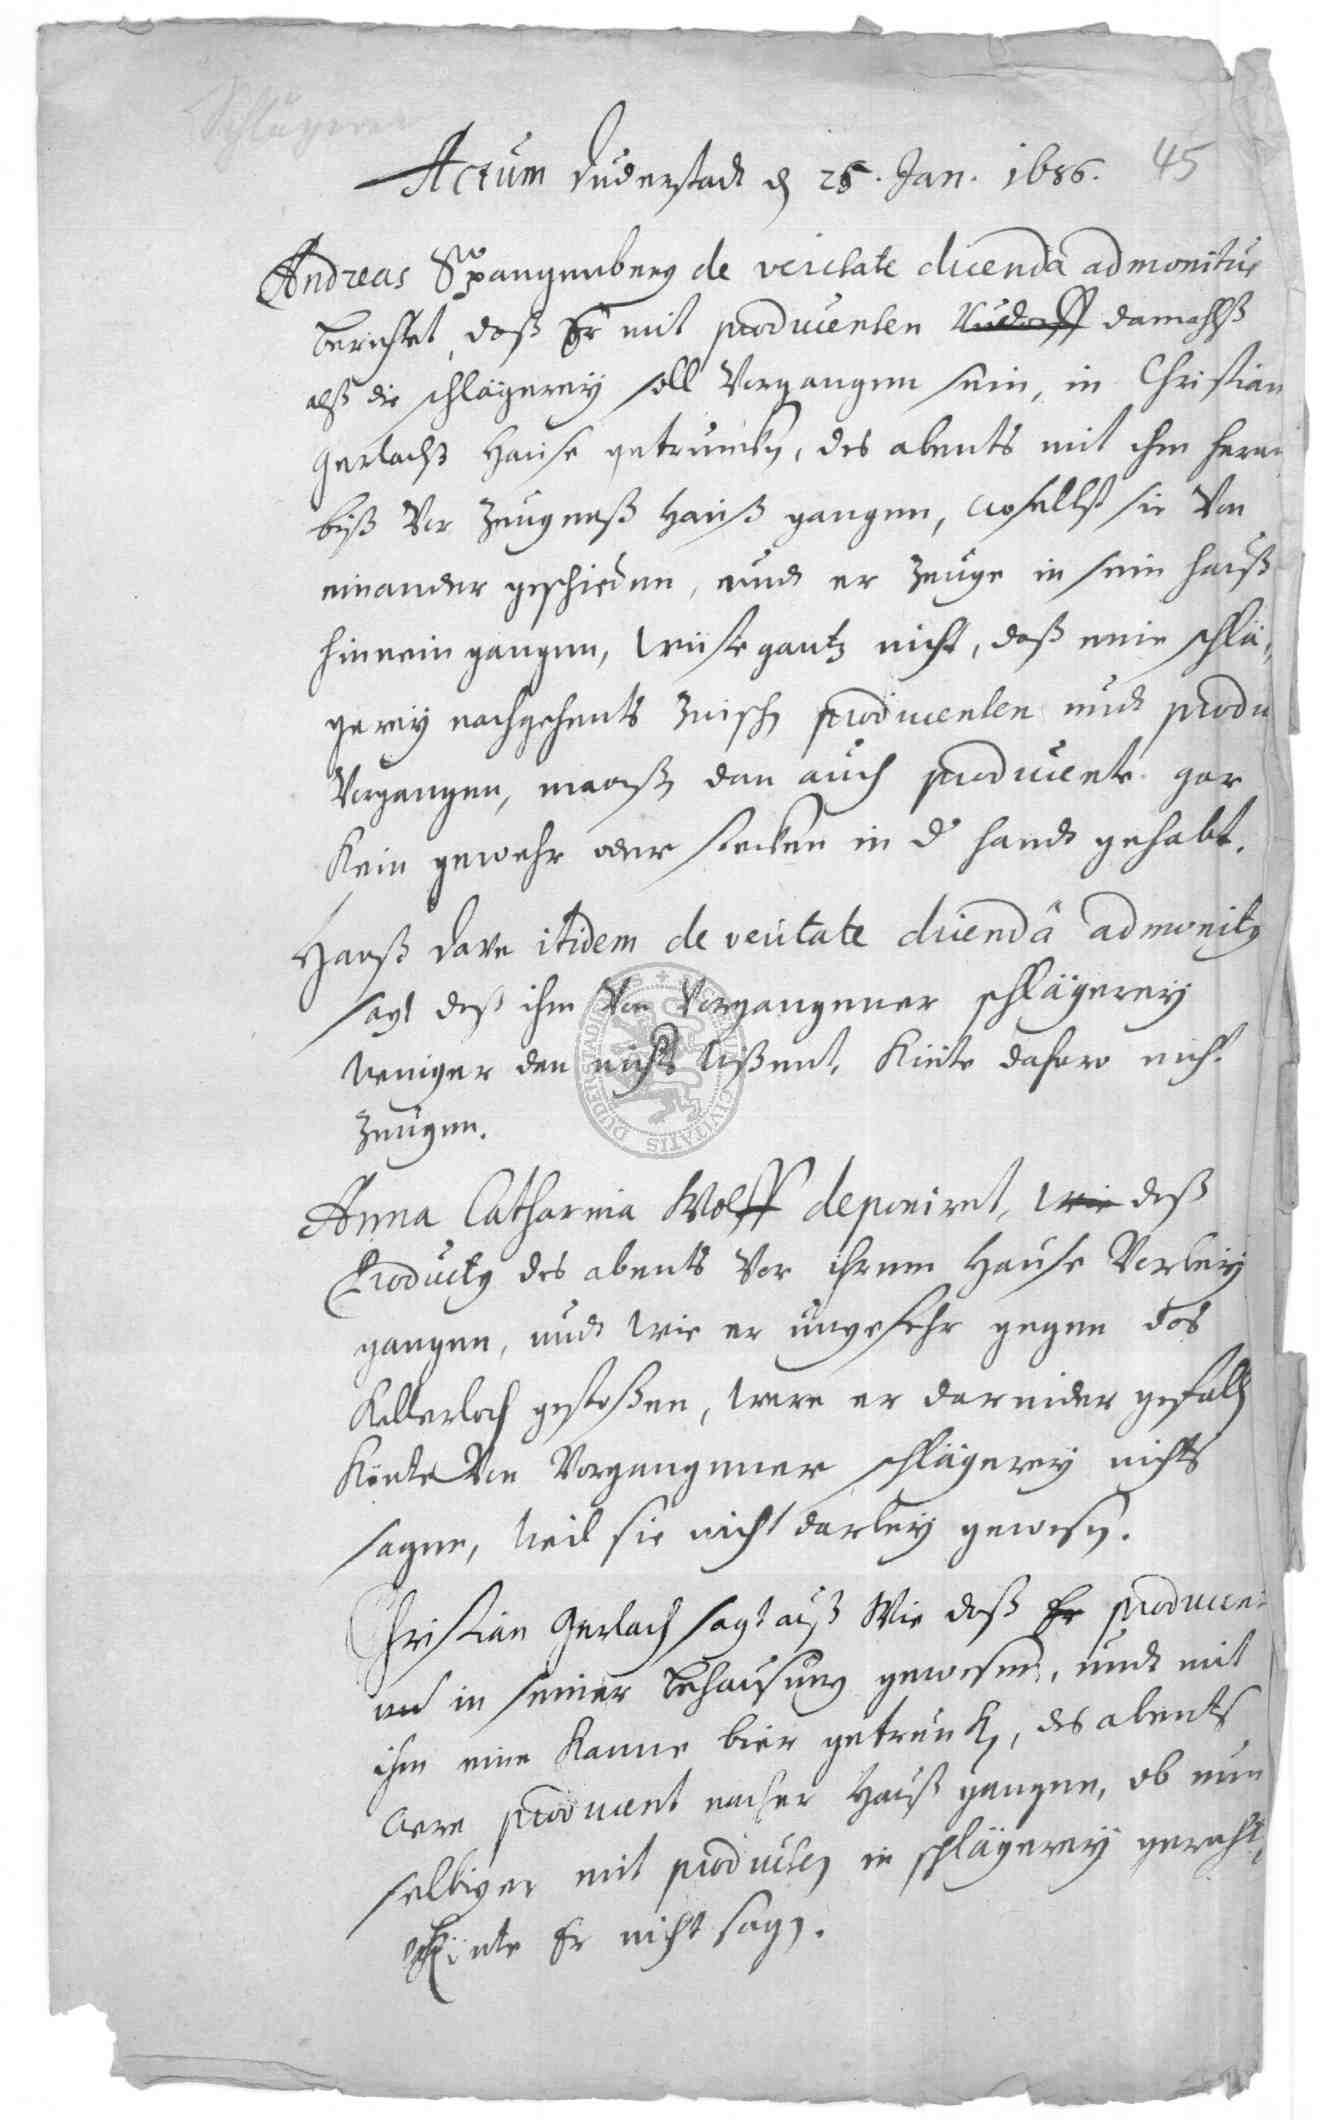 Schlägerey
45
Actum Duderstadt d 25. Jan. 1686.
Andreas Spangenberg de veritate dicendâ admonitus
berichtet, daß Er mit producenten damahlß
alß die schlägerey soll Vorgangen sein, in Christian
Gerlachß Hause getruncken, des abents mit ihm herau
biß Vor Zeugenß Hauß gangen, woselbst sie Von
einander geschieden, undt er Zeuge in sein hauß
hinnein gangen, wüste gantz nicht, daß eine schlä,
gerey nachgehents Zwisch producenten undt produ
Vorgangen, maaß dan auch producente gar
Kein gewehr oder stecken in d handt gehabt.
Hanß Dore itidem de veritate dicendâ admonitus
sagt daß ihm Von Vorgangener schlägerey
weniger den nichts wißent, Könte dahero nicht
Zeugen.
SIGILLUM CIVITATIS DUDERSTADT
Anna Catharina Wolff deponiret, wie daß
Productus des abents Vor ihrem Hause Vorbey
gangen, undt wie er ungefehr gegen das
Kellerloch gestoßen, were er darnider gefallen
Könte Von Vorgangener schlägerey nichts
sagen, weil sie nicht darbey gewesen.
Christian Gerlach sagt auß Wie daß Er producent
in seiner behausung gewesen, undt mit
ihm eine Kanne bier getruncken, des abents
were producent nacher Hauß gangen, ob nun
selbiger mit producten in schlägerey geraht,
Könte Er nicht sagen.